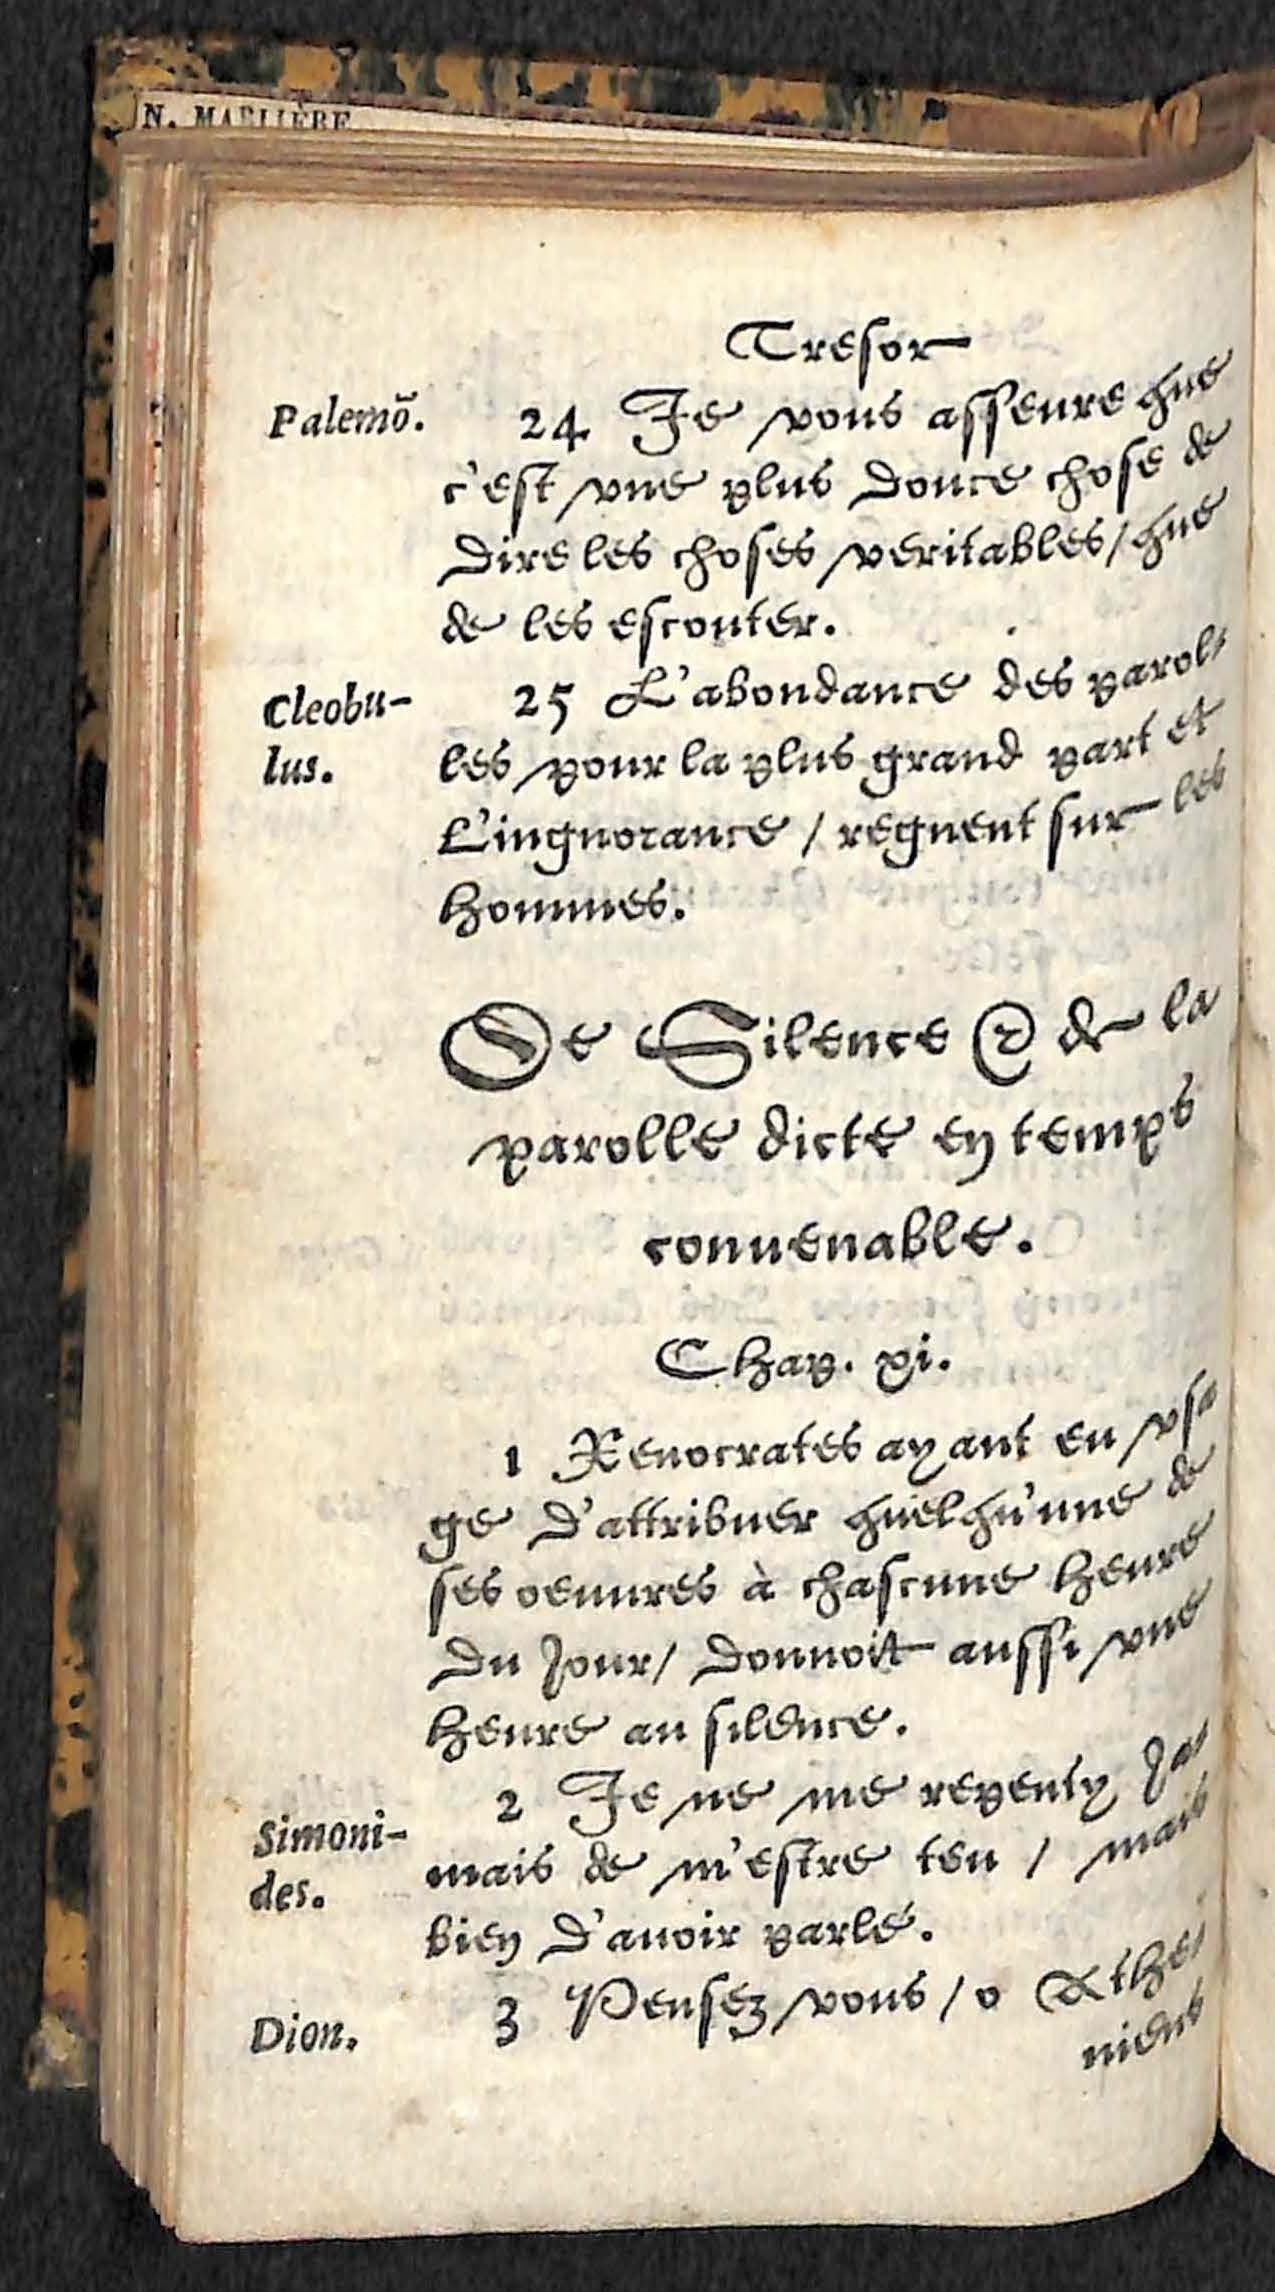 N. MARLIÈRE
Tresor
Palemõ.
24 Je vous asseure que
c'est vne plus douce chose de
dire les choses veritables / que
de les escouter.
Cleobu-
lus.
25 L'abondance des parol-
les pour la plus grand part et
L'ingnorance / regnent sur les
hommes.
De Silence & de la
parolle dicte en temps
conuenable.
Chap. xi.
1 Xenocrates ayant en vsa
ge d'attribuer quelqu'une de
ses oeuures à chascune heure
du jour / donnoit aussi vne
heure au silence.
Simoni-
des.
2 Je ne me repenty Ja-
mais de m'estre teu / mais
bien d'auoir parlé.
Dion.
3 Pensez vous / o Athe-
niens